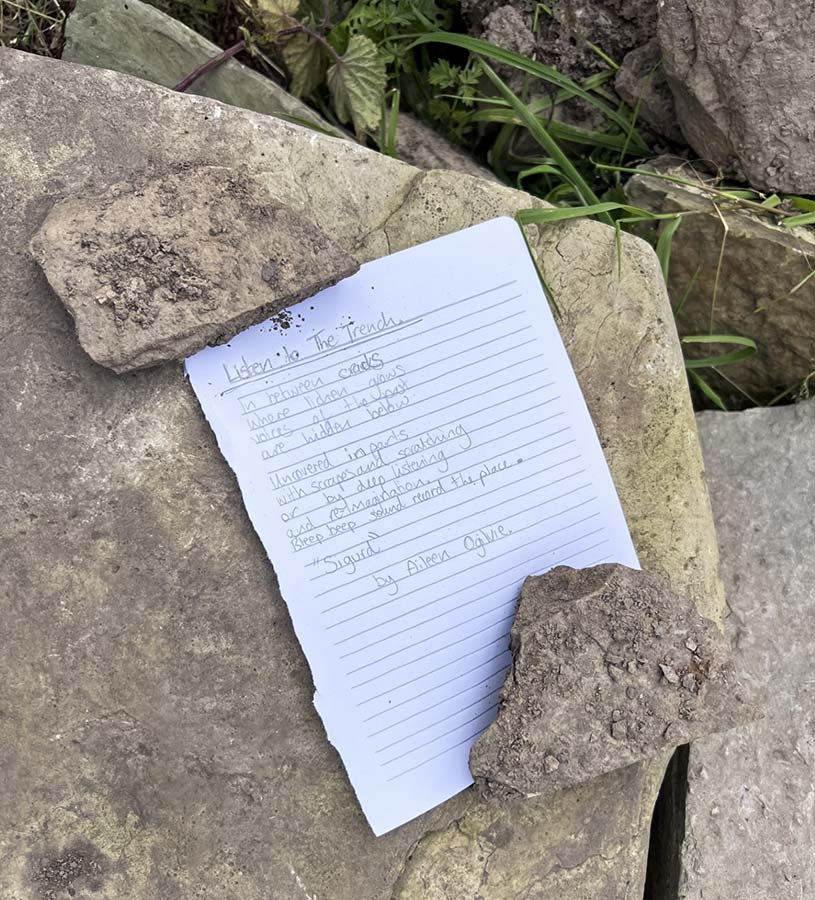 Listen to The Trench.
In between cracks
where lichen grows
voices of the past
are hidden below.
Uncovered in parts
with scraps and scratching
or by deep listening
and re-imagination.
Bleep beep sound record the place.
"Sigurd"
by Aileen Ogilvie.